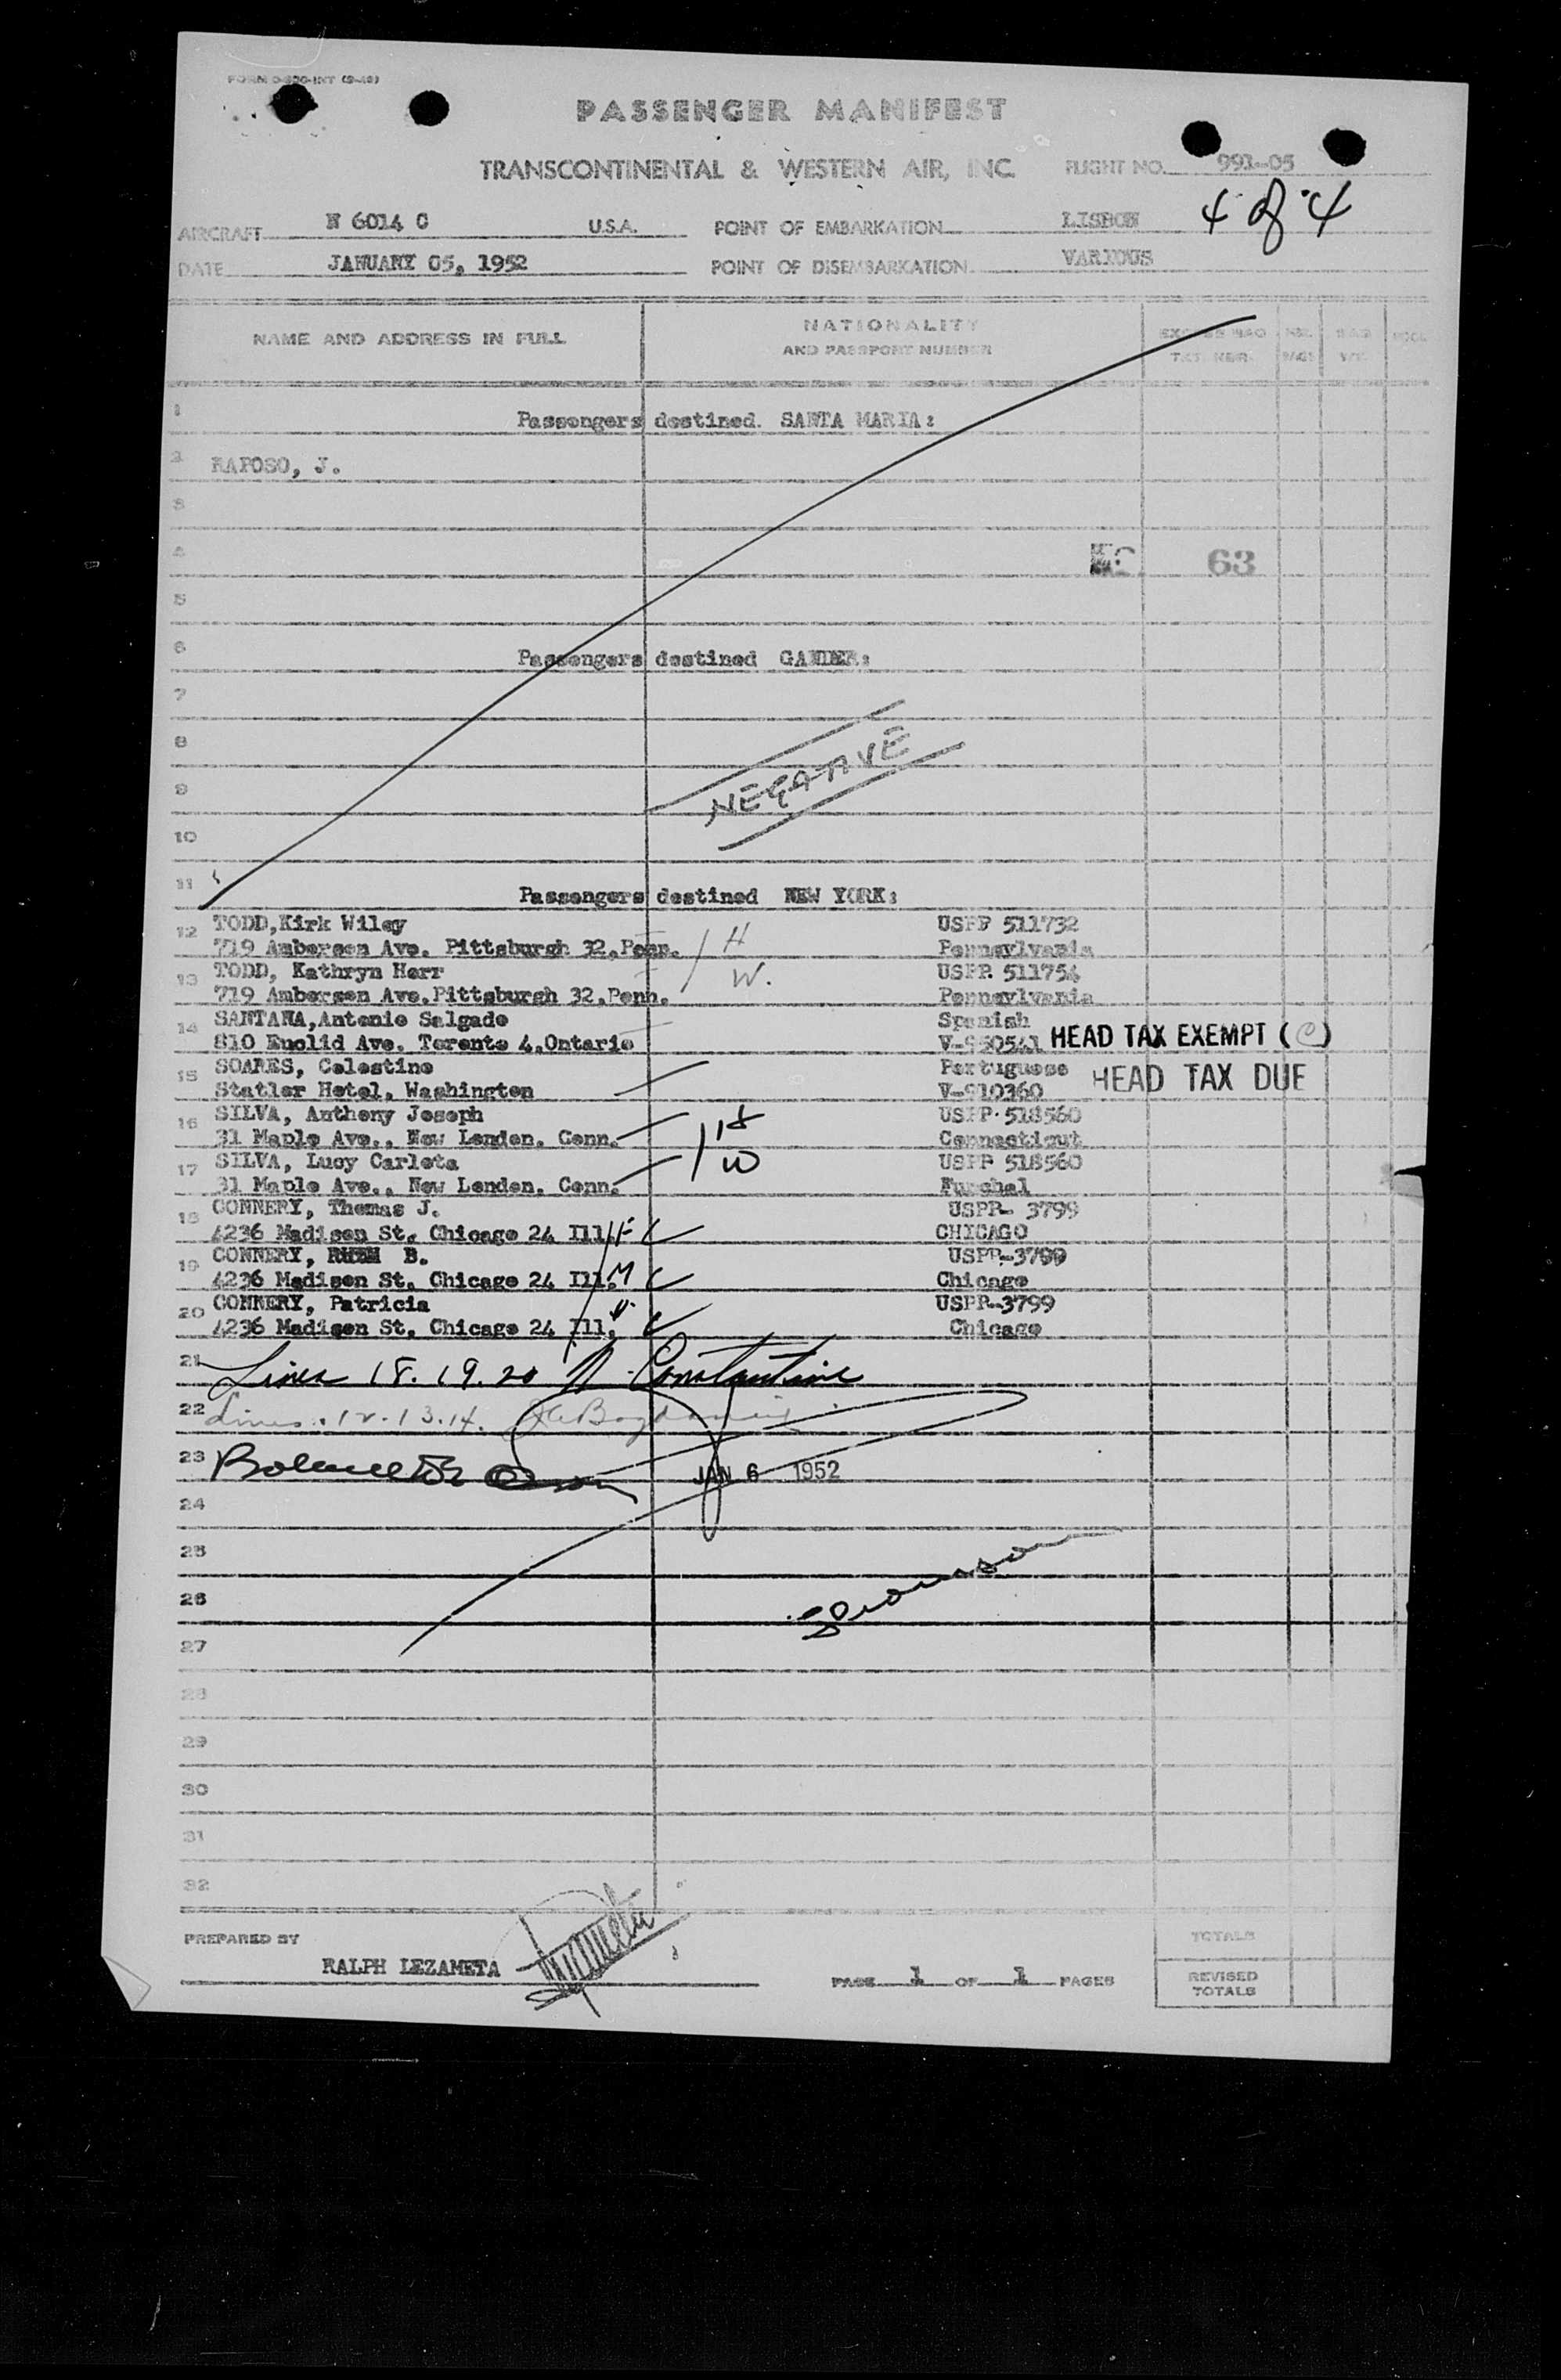 FORM 0-820-INT (9-48)
PASSENGER MANIFEST
TRANSCONTINENTAL & WESTERN AIR, INC. FLIGHT NO. 991-05
4 of 4
AIRCRAFT N 6014 C U.S.A. POINT OF EMBARKATION LISBON
DATE JANUARY 05, 1952 POINT OF DISEMBARKATION VARIOUS
NAME AND ADDRESS IN FULL NATIONALITY AND PASSPORT NUMBER
1 Passengers destined SANTA MARIA:
2 RAPOSO, J.
3
4 63
5
6 Passengers destined GANDER:
7
8
NEGATIVE
9
10
11 Passengers destined NEW YORK:
12 TODD,Kirk Wiley USPP 511732
719 Amberson Ave. Pittsburgh 32,Penn. H Pennsylvania
13 TODD, Kathryn Herr USPP 511754
719 Amberson Ave.Pittsburgh 32,Penn. W. Pennsylvania
14 SANTANA,Antonio Salgado Spanish
810 Euclid Ave. Toronto 4,Ontario HEAD TAX EXEMPT (C)
15 SOARES, Celestino Portuguese
Statler Hotel, Washington V-910360 HEAD TAX DUE
16 SILVA, Anthony Joseph USPP 518560
31 Maple Ave., New London, Conn. H Connecticut
17 SILVA, Lucy Carlota USPP 518560
31 Maple Ave., New London, Conn. W Funchal
18 CONNERY, Thomas J. USPP- 3799
4236 Madison St, Chicago 24 Ill. F CHICAGO
19 CONNERY, B. USPP-3799
4236 Madison St, Chicago 24 Ill. M Chicago
20 CONNERY, Patricia USPP-3799
4236 Madison St, Chicago 24 Ill. Chicago
21 Lines 18.19.20 N. Constantine
22 Lines 12.13.14.
23 JAN 6 1952
24
25
26
27
28
29
30
31
32
PREPARED BY TOTALS
RALPH LEZAMETA PAGE 1 OF 1 PAGES REVISED TOTALS